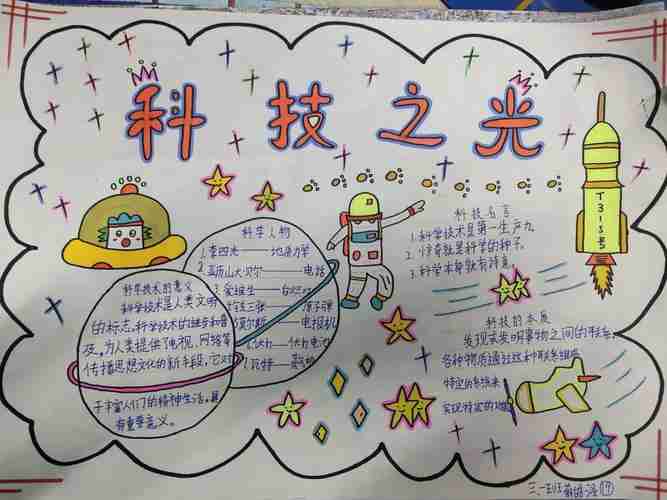 科技之光
科学人物
1.李四光——地质力学
2.亚历山大贝尔——电话
3.爱迪生——台灯
原子弹
莫尔斯——电报机
伏特电池
7.瓦特
科学技术的意义
科学技术是人类文明
的标志。科学技术的
及，为人类提供了电视、网络等
传播思想文化的新手段，它对
于丰富人们的精神生活，具
有重要意义。
科技名言
1.科学技术是第一生产力
2.好奇就是科学的种子。
3.科学本身就有诗意。
科技的本质
发现或发明事物之间的联系，
各种物质通过这种联系组成
特定的系统来
实现特定的功能
三、一班